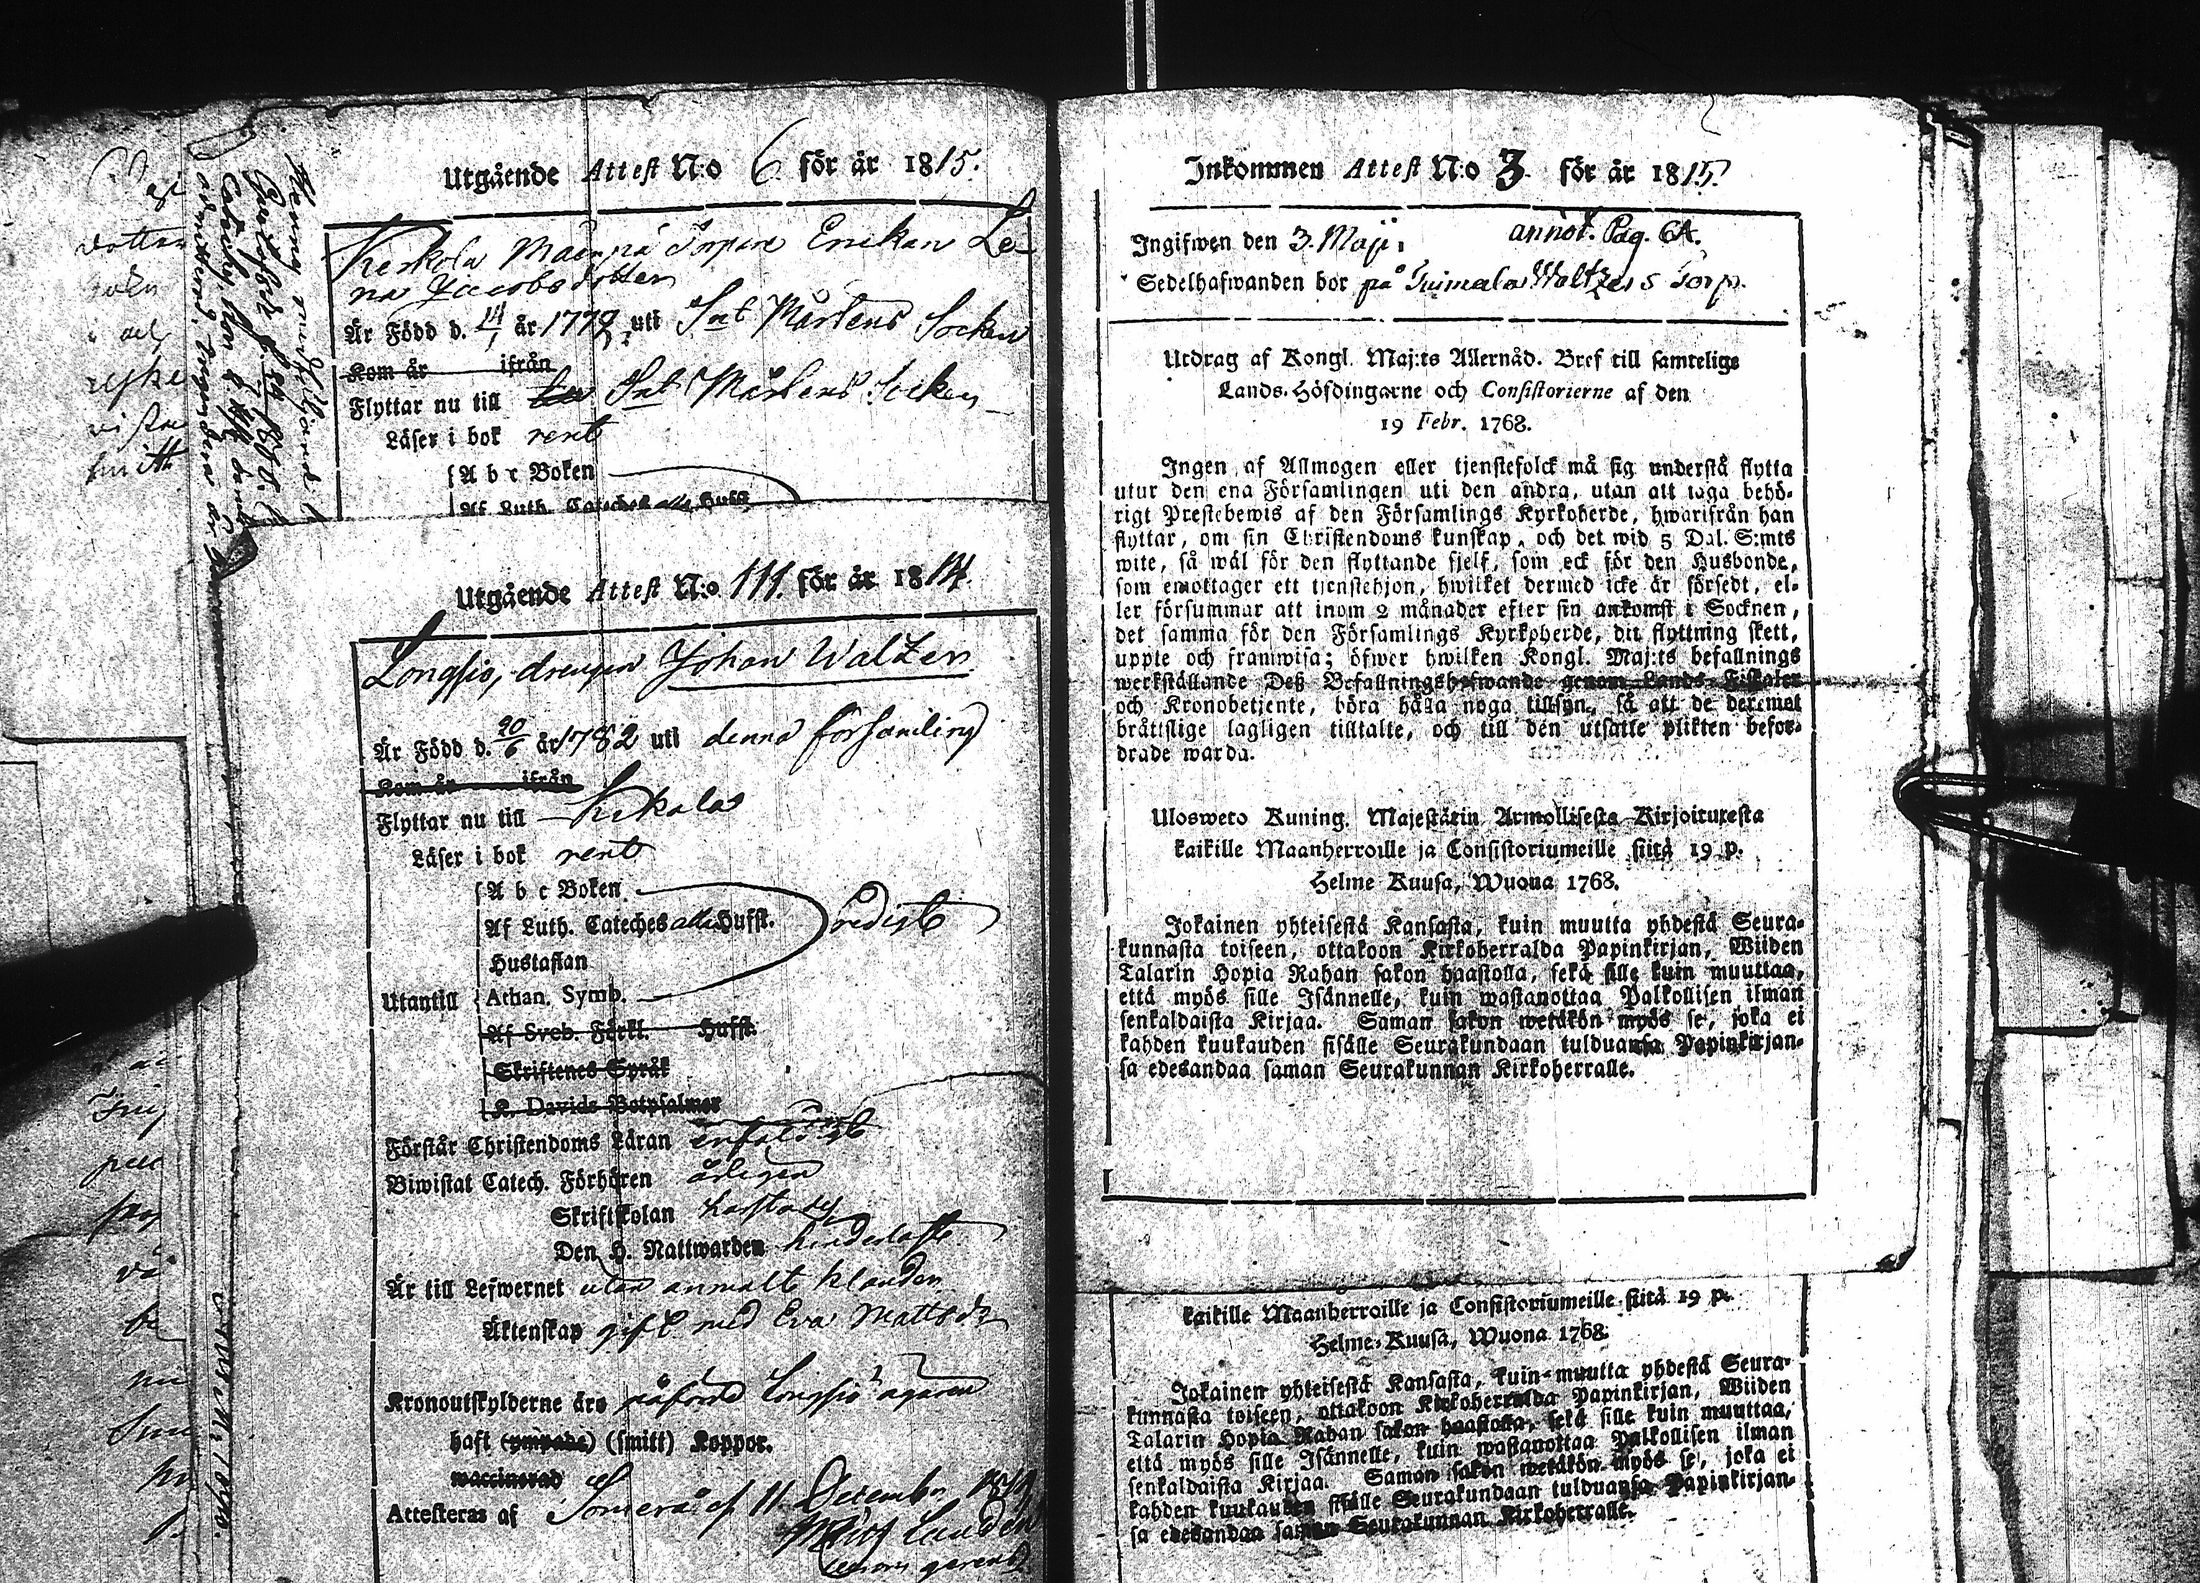 Utgående Attest N:o 6 för år 1815.
Kerkola Mäenpä Enckan Le-
na Jacobsdotter
Är Född d. år 1772 uti Snt Mårtens Socken
Kom år ifrån
Flyttar nu till Snt Mårtens Socken
Läser i bok rent
A b c Boken
Af Luth. Cateches alla Hufst.
Utgående Attest N:o 111. för år 1814.
Longsio, drengen Johan Walzen
Är Född d. 20/6 år 1782 uti denna församling
Kom år ifrån
Flyttar nu till
Läser i bok rent
A b c Boken
Af Luth. Cateches alla Hufst.
Hustaflan
Utantill Athan. Symb.
Af Sveb. Förkl. Hufst.
Skriftenes Språk
K. Davids Botpsalmer
Förstår Christendoms Läran enfaldigt
Biwistat Catech. Förhören årligen
Skriftskolan
Den H. Nattwarden
Är till Lefwernet utan anmält klander
Äktenskap gift med Eva Mattsdr
Kronoutskylderne äro påförde Longsio ägaren
haft (ympade) (smitt) Koppor.
vaccinerad
Attesteras af Somero d. 11 December 1814
Inkommen Attest N:o 3. för år 1815.
Ingifwen den 3. Maji. annot. Pag. 64.
Sedelhafwanden bor på Waltzens Torp.
Utdrag af Kongl. Maj:ts Allernåd. Bref till samtelige
Lands-Höfdingarne och Consistorierne af den
19 Febr. 1768.
Ingen af Allmogen eller tjenstefolck må sig understå flytta
utur den ena Församlingen uti den andra, utan att taga behö-
rigt Prestebewis af den Församlings Kyrkoherde, hwarifrån han
flyttar, om sin Christendoms kunskap, och det wid 5 Dal. S:mts
wite, så wäl för den flyttande sjelf, som ock för den Husbonde,
som emottager ett tjenstehjon, hwilket dermed icke är försedt, el-
ler försummar att inom 2 månader efter sin ankomst i Socknen,
det samma för den Församlings Kyrkoherde, dit flyttning skett,
uppte och framwisa; öfwer hwilken Kongl. Maj:ts befallnings
werkställande Deß Befallningshafwande genom Lands-Fiskaler
och Kronobetjente, böra hålla noga tillsyn, så att de deremot
bråttslige lagligen tilltalte, och till den utsatte plikten befor-
drade warda.
Ulosweto Kuning. Majestätin Armollisesta Kirjoituxesta
kaikille Maanherroille ja Consistoriumeille siitä 19 p.
Helme Kuusa, Wuona 1768.
Jokainen yhteisestä Kansasta, kuin muutta yhdestä Seura-
kunnasta toiseen, ottakoon Kirkoherralda Papinkirjan, Wiiden
Talarin Hopia Rahan sakon haastolla, sekä sille kuin muuttaa,
että myös sille Isännelle, kuin wastanottaa Palkollisen ilman
senkaldaista Kirjaa. Saman sakon wetäkön myös se, joka ei
kahden kuukauden sisälle Seurakundaan tulduansa Papinkirjan-
sa edesandaa saman Seurakunnan Kirkoherralle.
kaikille Maanherroille ja Consistoriumeille siitä 19 p.
Helme-Kuusa, Wuona 1768.
Jokainen yhteisestä Kansasta, kuin muutta yhdestä Seura-
kunnasta toiseen, ottakoon Kirkoherralda Papinkirjan, Wiiden
Talarin Hopia Rahan sakon haastolla, sekä sille kuin muuttaa,
että myös sille Isännelle, kuin wastanottaa Palkollisen ilman
senkaldaista Kirjaa. Saman sakon wetäkön myös se, joka ei
kahden kuukauden sisälle Seurakundaan tulduansa Papinkirjan-
sa edesandaa saman Seurakunnan Kirkoherralle.